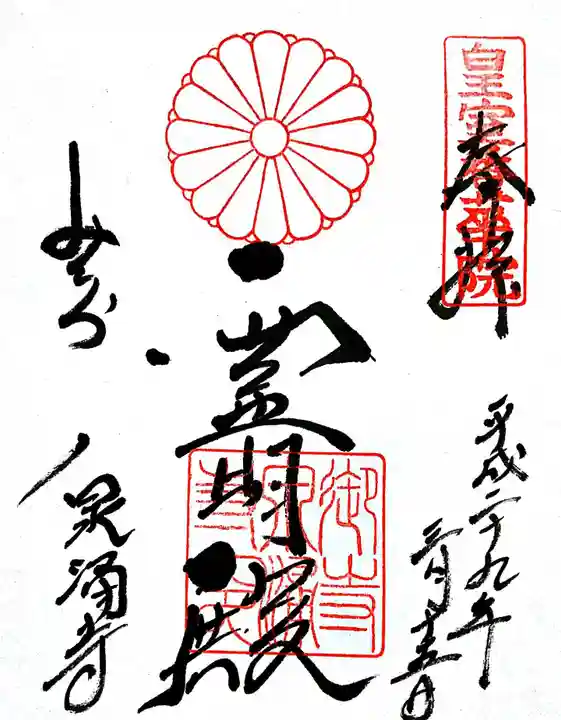 奉拝
皇室香華院
平成二十九年
二月十五日
霊明殿
御寺
みてら
泉涌寺